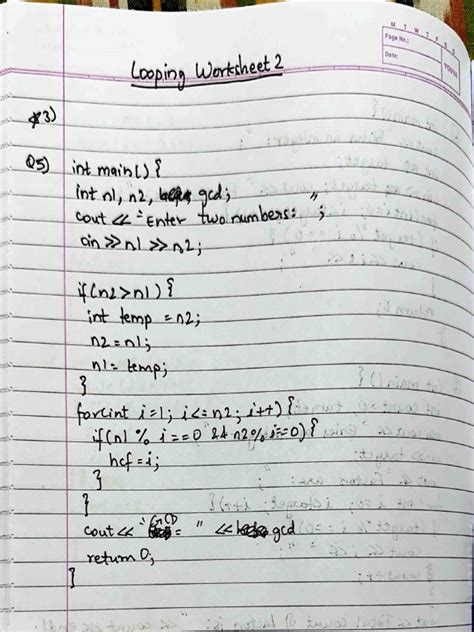 M T W T F S S
Page No.:
Date:
YOUVA
Looping Worksheet 2
3)
Q5) int main() {
int n1, n2, gcd;
cout << "Enter two numbers: ";
cin >> n1 >> n2;
if(n2>n1) {
int temp = n2;
n2 = n1;
n1 = temp;
}
for(int i=1; i<=n2; i++) {
if(n1 % i ==0 && n2 % i==0) {
hcf = i;
}
}
cout << "GCD = " << gcd
return 0;
}